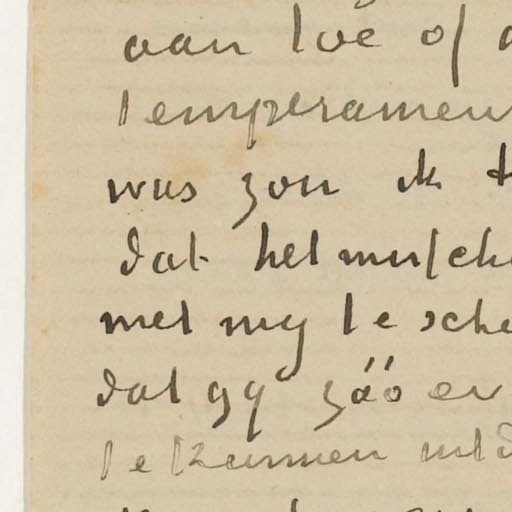 aan toe of
temperamen
was zou ik t
dat het missch
met mij te sche
dat gij záó er
te kunnen uitd